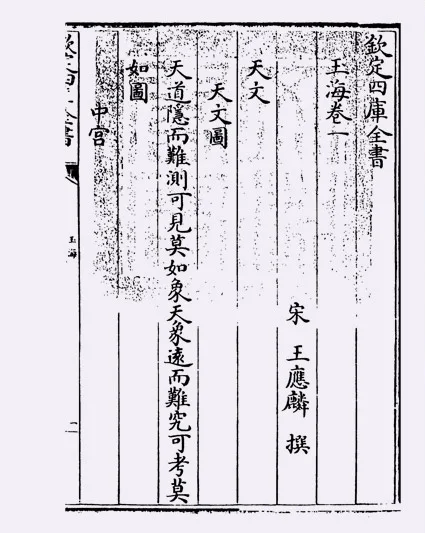 欽定四庫全書
玉海卷一
宋 王應麟 撰
天文
天文圖
天道隱而難測可見莫如象天象遠而難究可考莫
如圖
中宮
欽定四庫全書
玉海
一